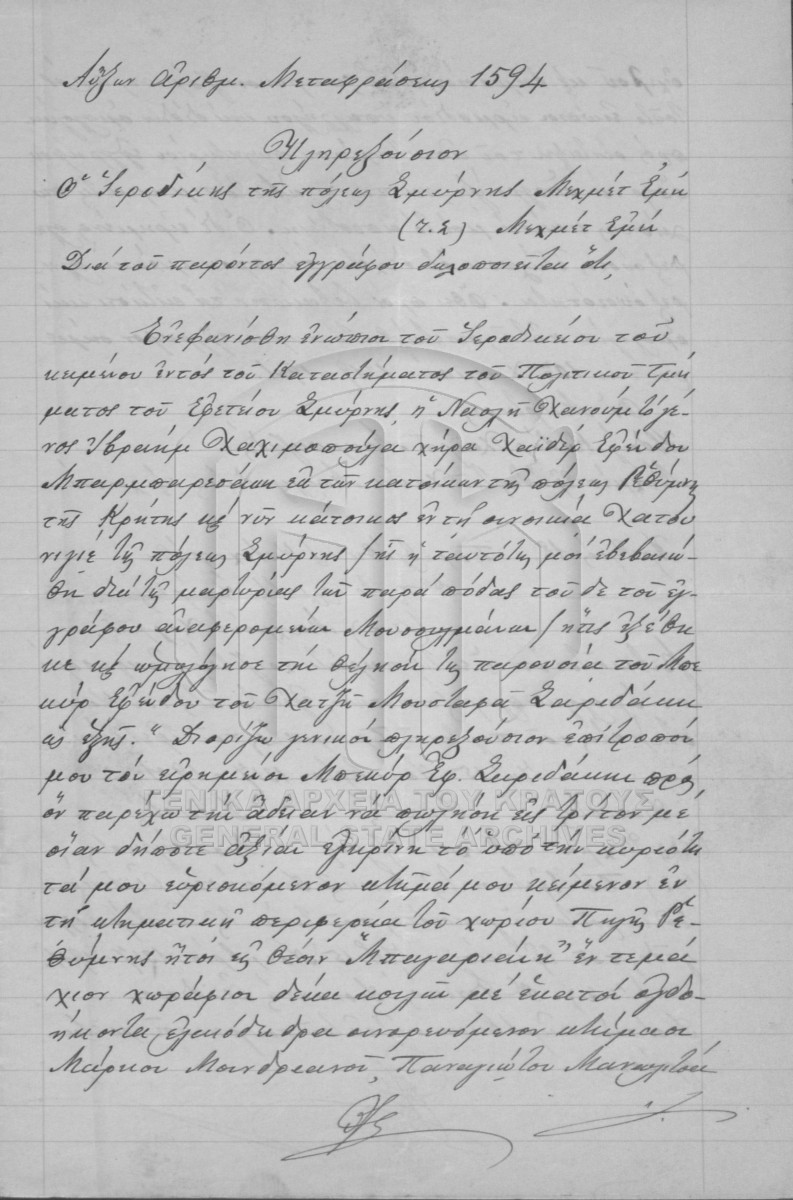 Αὔξων ἀριθμ. Μεταφράσεως 1594
Πληρεξούσιον
Ὁ Ἱεροδίκης τῆς πόλεως Σμύρνης Μεχμέτ Ἐμίν
(τ.σ) Μεχμέτ Ἐμίν
Διὰ τοῦ παρόντος ἐγγράφου δηλοποιεῖται ὅτι,
Ἐνεφανίσθη ἐνώπιον τοῦ Ἱεροδικείου τοῦ
κειμένου ἐντός τοῦ Καταστήματος τοῦ Πολιτικοῦ Τμή
ματος τοῦ Ἐφετείου Σμύρνης, ἡ Ναϊλὴ Χανούμ τὸ γέ-
νος Ἰβραήμ Χαχιμοπούλα χήρα Χαϊδέρ Ἐφένδου
Μπαρμπαρεσάκη ἐκ τῶν κατοίκων τῆς πόλεως Ῥεθύμνης
τῆς Κρήτης κ νῦν κάτοικος ἐν τῇ συνοικία Χατου
νιγιέ τῆς πόλεως Σμύρνης / ἧς ἡ ταυτότης μοὶ ἐβεβαιώ-
θη διὰ τῆς μαρτυρίας τῶν παρά πόδας τοῦδε τοῦ ἐγ-
γράφου ἀναφερομένων Μουσουλμάνων / ἥτις ἐξέθη
κε κ ὡμολόγησε τὴν θέλησίν της παρουσία τοῦ Μπε
κύρ Ἐφένδου τοῦ Χατζῆ Μουσταφᾶ Σαριδάκη
ὡς ἑξῆς. " Διορίζω γενικόν πληρεξούσιον ἐπίτροπόν
μου τόν εἰρημένον Μπεκύρ Ἐφ. Σαριδάκην πρός
ὅν παρέχω τὴν ἄδειαν νά πωλήσῃ εἰς τρίτον μέ
οἵαν δήποτε ἀξίαν ἐγκρίνῃ τό ὑπό τὴν κυριότη
τά μου εὑρισκόμενον κτῆμά μου κείμενον ἐν
τῇ κτηματικῇ περιφερεία τοῦ χωρίου Πηγῆς Ῥε-
θύμνης ἤτοι εἰς θέσιν "Μπαγαριάκη" ἕν τεμά
χιον χωράφιον δέκα με ἑκατόν ὀγδο-
ήκοντα ἐλαιόδενδρα συνορευόμενον κτήμασι
Μάρκου Μανωλιτσά
ΓΕΝΙΚΑ ΑΡΧΕΙΑ ΤΟΥ ΚΡΑΤΟΥΣ
GENERAL STATE ARCHIVES